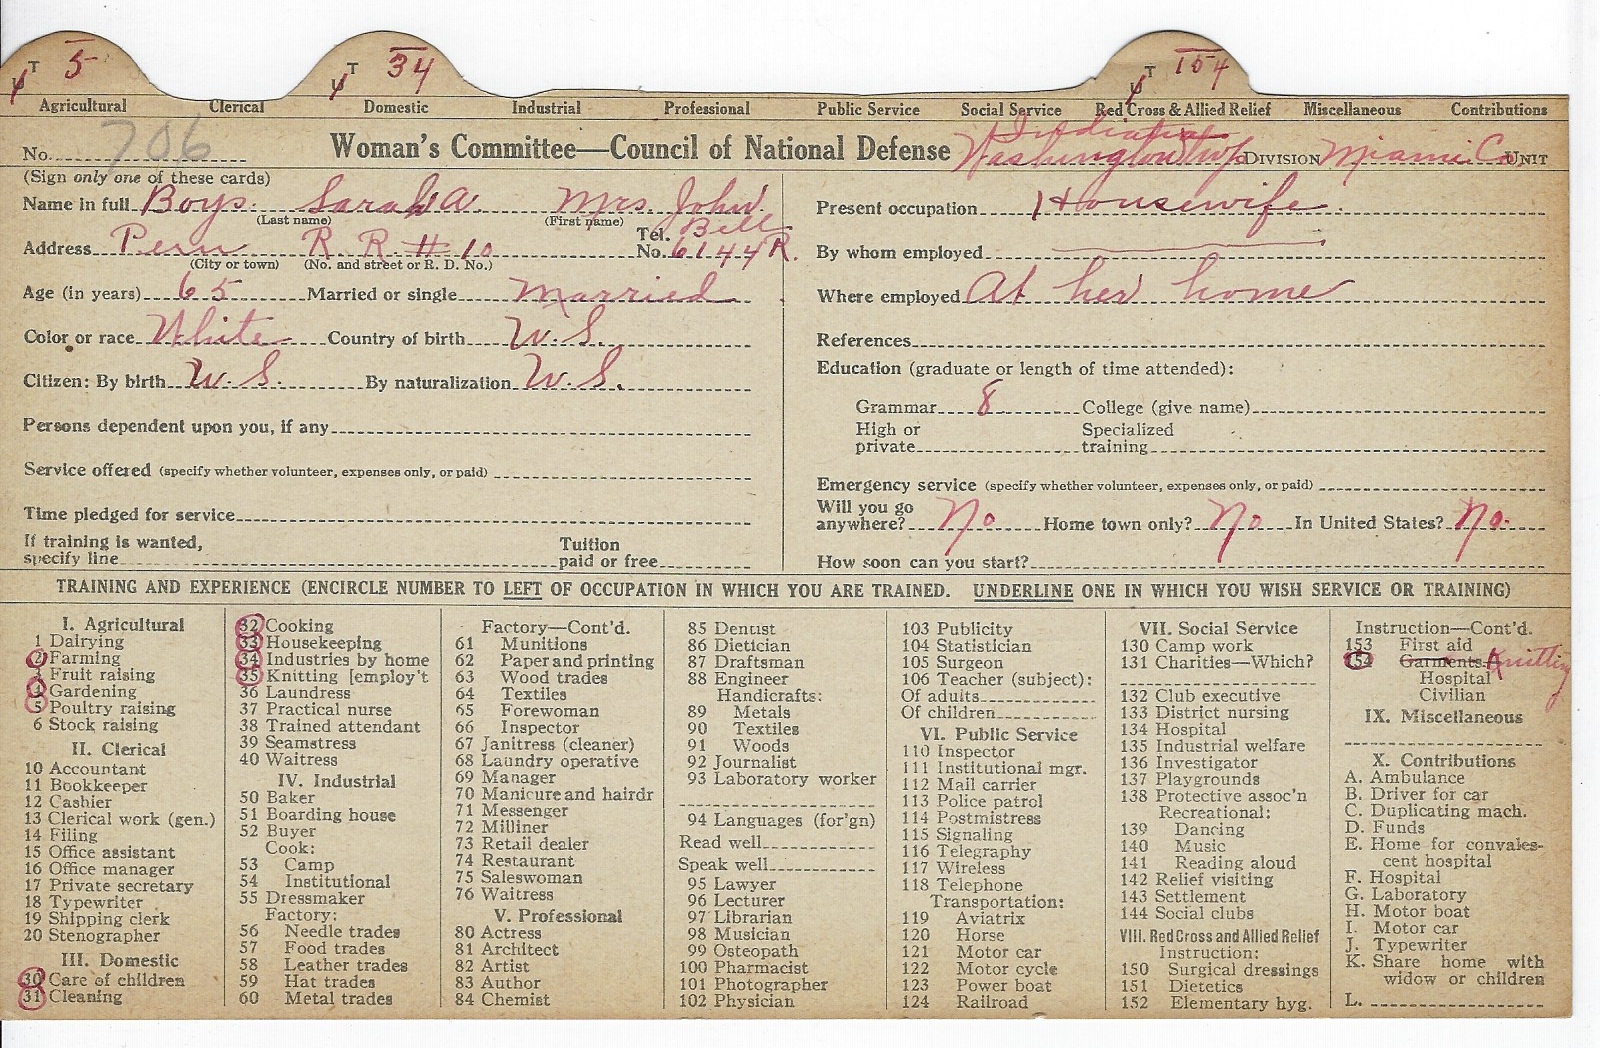 T 5 T 34 T 154
Agricultural Clerical Domestic Industrial Professional Public Service Social Service Red Cross & Allied Relief Miscellaneous Contributions
Indiana
No. 706 Woman's Committee—Council of National Defense Washington Twp. DIVISION Miami Co. UNIT
(Sign only one of these cards)
Name in full Boys. Sarah A. Mrs. John
(Last name) (First name)
Address Peru R. R. # 10 Tel. No. Bell 6144 R.
(City or town) (No. and street or R. D. No.)
Age (in years) 65 Married or single Married
Color or race White Country of birth U.S.
Citizen: By birth U.S. By naturalization U.S.
Persons dependent upon you, if any
Service offered (specify whether volunteer, expenses only, or paid)
Time pledged for service
If training is wanted, specify line Tuition paid or free
Present occupation Housewife
By whom employed
Where employed At her home
References
Education (graduate or length of time attended):
Grammar 8 College (give name)
High or private Specialized training
Emergency service (specify whether volunteer, expenses only, or paid)
Will you go anywhere? No Home town only? No In United States? No.
How soon can you start?
TRAINING AND EXPERIENCE (ENCIRCLE NUMBER TO LEFT OF OCCUPATION IN WHICH YOU ARE TRAINED. UNDERLINE ONE IN WHICH YOU WISH SERVICE OR TRAINING)
I. Agricultural
1 Dairying
2 Farming
3 Fruit raising
4 Gardening
5 Poultry raising
6 Stock raising
II. Clerical
10 Accountant
11 Bookkeeper
12 Cashier
13 Clerical work (gen.)
14 Filing
15 Office assistant
16 Office manager
17 Private secretary
18 Typewriter
19 Shipping clerk
20 Stenographer
III. Domestic
30 Care of children
31 Cleaning
32 Cooking
33 Housekeeping
34 Industries by home
35 Knitting [employ't
36 Laundress
37 Practical nurse
38 Trained attendant
39 Seamstress
40 Waitress
IV. Industrial
50 Baker
51 Boarding house
52 Buyer
Cook:
53 Camp
54 Institutional
55 Dressmaker
Factory:
56 Needle trades
57 Food trades
58 Leather trades
59 Hat trades
60 Metal trades
Factory—Cont'd.
61 Munitions
62 Paper and printing
63 Wood trades
64 Textiles
65 Forewoman
66 Inspector
67 Janitress (cleaner)
68 Laundry operative
69 Manager
70 Manicure and hairdr
71 Messenger
72 Milliner
73 Retail dealer
74 Restaurant
75 Saleswoman
76 Waitress
V. Professional
80 Actress
81 Architect
82 Artist
83 Author
84 Chemist
85 Dentist
86 Dietician
87 Draftsman
88 Engineer
Handicrafts:
89 Metals
90 Textiles
91 Woods
92 Journalist
93 Laboratory worker
94 Languages (for'gn)
Read well
Speak well
95 Lawyer
96 Lecturer
97 Librarian
98 Musician
99 Osteopath
100 Pharmacist
101 Photographer
102 Physician
103 Publicity
104 Statistician
105 Surgeon
106 Teacher (subject):
Of adults
Of children
VI. Public Service
110 Inspector
111 Institutional mgr.
112 Mail carrier
113 Police patrol
114 Postmistress
115 Signaling
116 Telegraphy
117 Wireless
118 Telephone
Transportation:
119 Aviatrix
120 Horse
121 Motor car
122 Motor cycle
123 Power boat
124 Railroad
VII. Social Service
130 Camp work
131 Charities—Which?
132 Club executive
133 District nursing
134 Hospital
135 Industrial welfare
136 Investigator
137 Playgrounds
138 Protective assoc'n
Recreational:
139 Dancing
140 Music
141 Reading aloud
142 Relief visiting
143 Settlement
144 Social clubs
VIII. Red Cross and Allied Relief
Instruction:
150 Surgical dressings
151 Dietetics
152 Elementary hyg.
Instruction—Cont'd.
153 First aid
154 Garments Knitting
Hospital
Civilian
IX. Miscellaneous
X. Contributions
A. Ambulance
B. Driver for car
C. Duplicating mach.
D. Funds
E. Home for convales-
cent hospital
F. Hospital
G. Laboratory
H. Motor boat
I. Motor car
J. Typewriter
K. Share home with
widow or children
L.